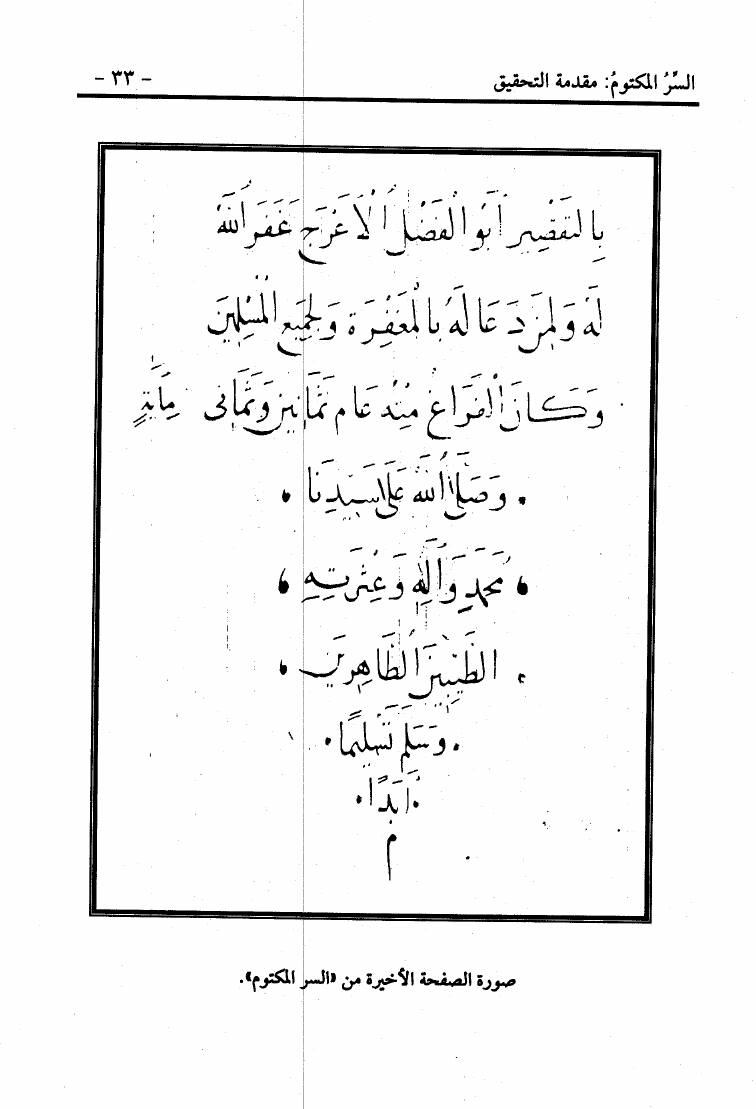 السِّرُ المكتومُ: مقدمة التحقيق - ٣٣ -
بِالتَقْصِيرِ أَبُو الْفَضْلِ الْأَعْرَجِ غَفَرَ اللَّهُ
لَهُ وَلِمَنْ دَعَا لَهُ بِالْمَغْفِرَةِ وَلِجَمِيعِ الْمُسْلِمِينَ
وَكَانَ الْفَرَاغُ مِنْهُ عَامَ ثَمَانِينَ وَثَمَانِي مِائَةٍ
وَصَلَّى اللَّهُ عَلَى سَيِّدِنَا
مُحَمَّدٍ وَآلِهِ وَعِتْرَتِهِ
الطَّيِّبِينَ الطَّاهِرِينَ
وَسَلَّمَ تَسْلِيمًا
أَبَدًا
م
صورة الصفحة الأخيرة من «السر المكتوم».